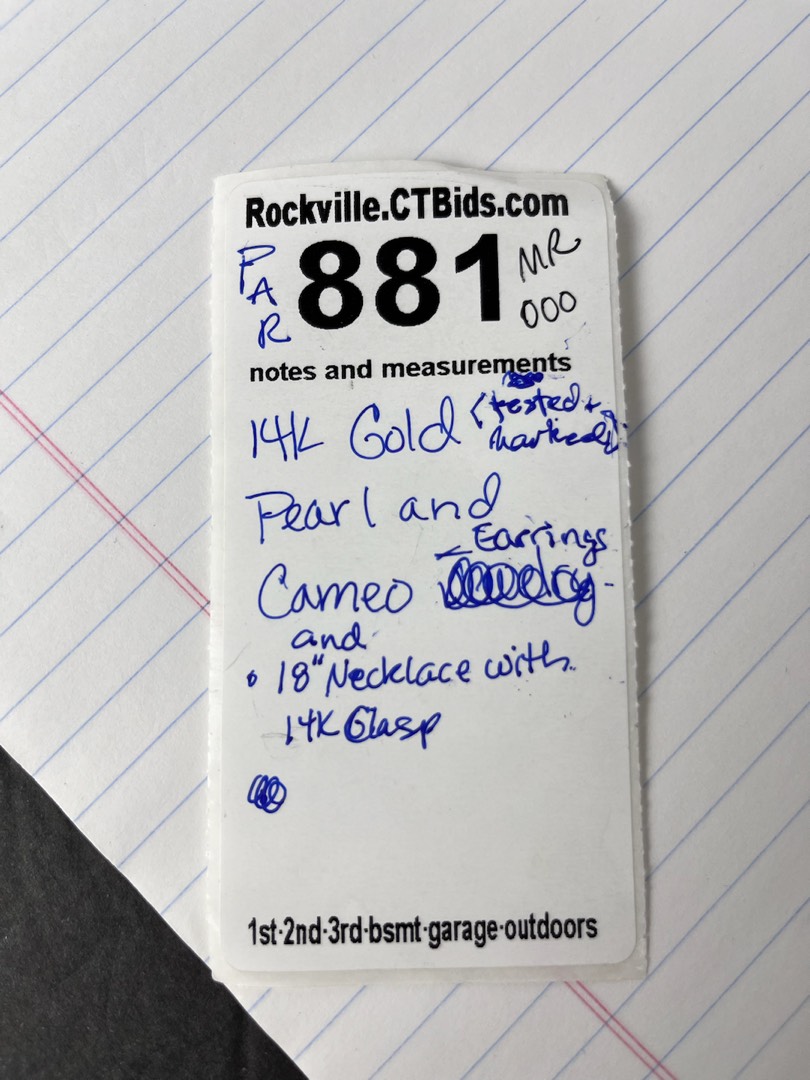 Rockville.CTBids.com
PAR 881 MR
000
notes and measurements
14K Gold (tested + marked)
Pearl and
Earrings
Cameo
and
• 18" Necklace with
14K Clasp
1st·2nd·3rd·bsmt·garage·outdoors